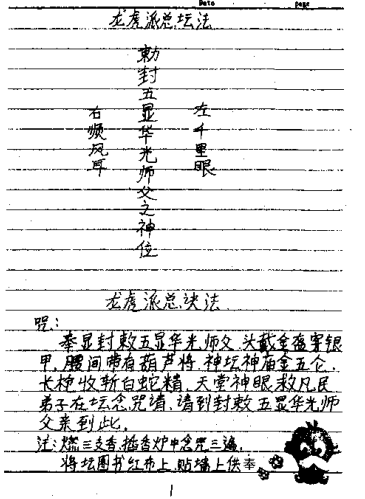 Date page
龙虎派总坛法
勅封五显华光师父之神位
左千里眼
右顺风耳
龙虎派总诀法
咒:
奉显封敕五显华光师父,头戴金盔穿银
甲,腰间带有葫芦将,神坛神庙金五仑,
长枪收斩白蛇精,天堂神眼救凡民
弟子在坛念咒请,请到封敕五显华光师
父亲到此。
法:燃三支香插香炉中念咒三遍。
将坛图书红布上,贴墙上供奉
1